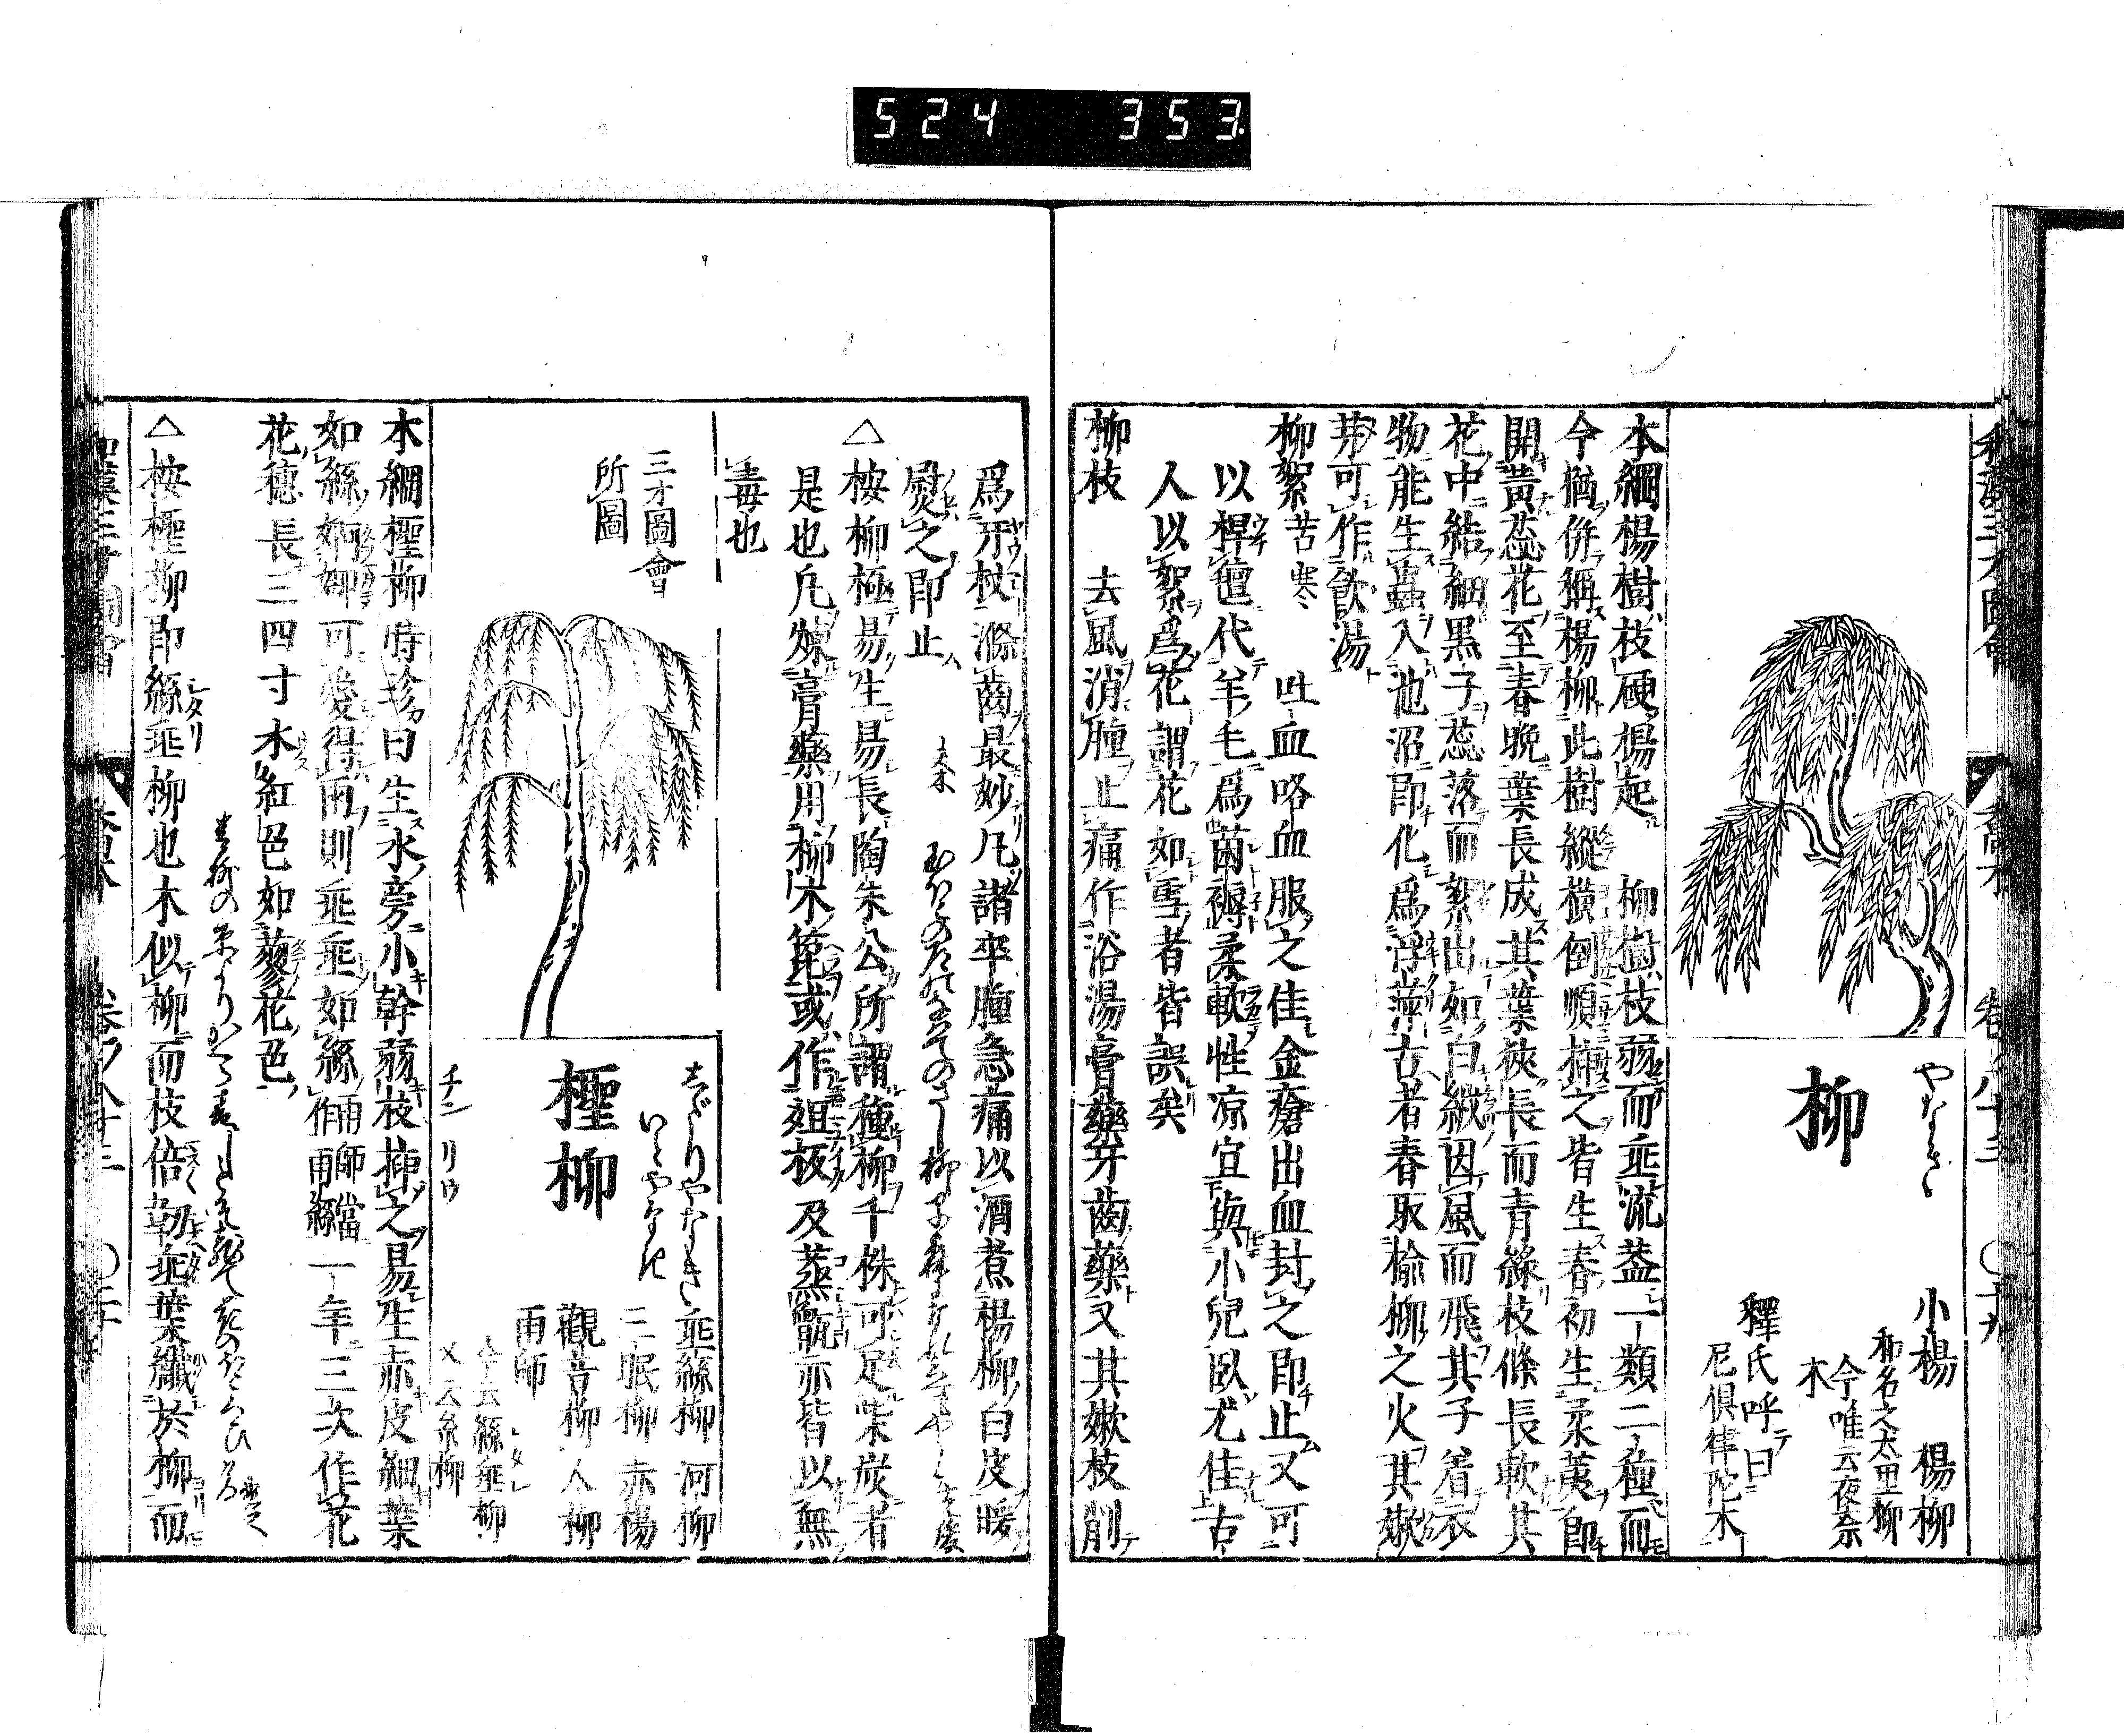 524 353.
柳
やなぎ
小楊 楊柳
和名之太里柳
今唯云夜奈
木
釋氏呼曰
尼俱律陀木
本綱楊樹枝硬楊起 柳樹枝弱而垂流蓋一類二種而
今猶併稱楊柳此樹縱橫倒順揷之皆生春初生柔荑卽
開黃蕊花至春晚葉長成其葉狹長而青綠枝條長軟其
花中結細黑子蕊落而絮出如白絨因風而飛其子着衣
物能生蟲入池沼卽化爲浮萍古者春取楡柳之火其嫩
芽可作飮湯
柳絮 苦寒 吐血咯血服之佳金瘡出血封之卽止又可
以捍氊代羊毛爲茵褥柔軟性凉宜與小兒臥尤佳古
人以絮爲花謂花如雪者皆誤矣
柳枝 去風消腫止痛作浴湯膏藥牙齒藥又其嫩枝削
爲牙杖滌齒最妙凡諸卒腫急痛以酒煮楊柳白皮暖
熨之卽止
△桉柳極易生易長陶朱公所謂種柳千株可足柴炭者
是也凡煉膏藥用柳木箆或作俎板及蒸甑亦皆以無
毒也
三才圖會
所圖
檉柳
チン リウ
しだりやなぎ
いとやなぎ
垂絲柳 河柳
三眠柳 赤楊
觀音柳 人柳
雨師
今云絲垂柳
又云糸柳
本綱檉柳時珍曰生水旁小幹弱枝揷之易生赤皮細葉
如絲婀娜可愛得雨則垂垂如絲 雨師當作雨絲 一年三次作花
花穗長三四寸木紅色如蓼花色
△桉檉柳卽絲垂柳也木似柳而枝倍韌垂葉纖於柳而